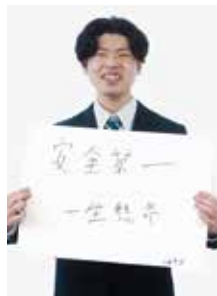 安全第一
一生懸命